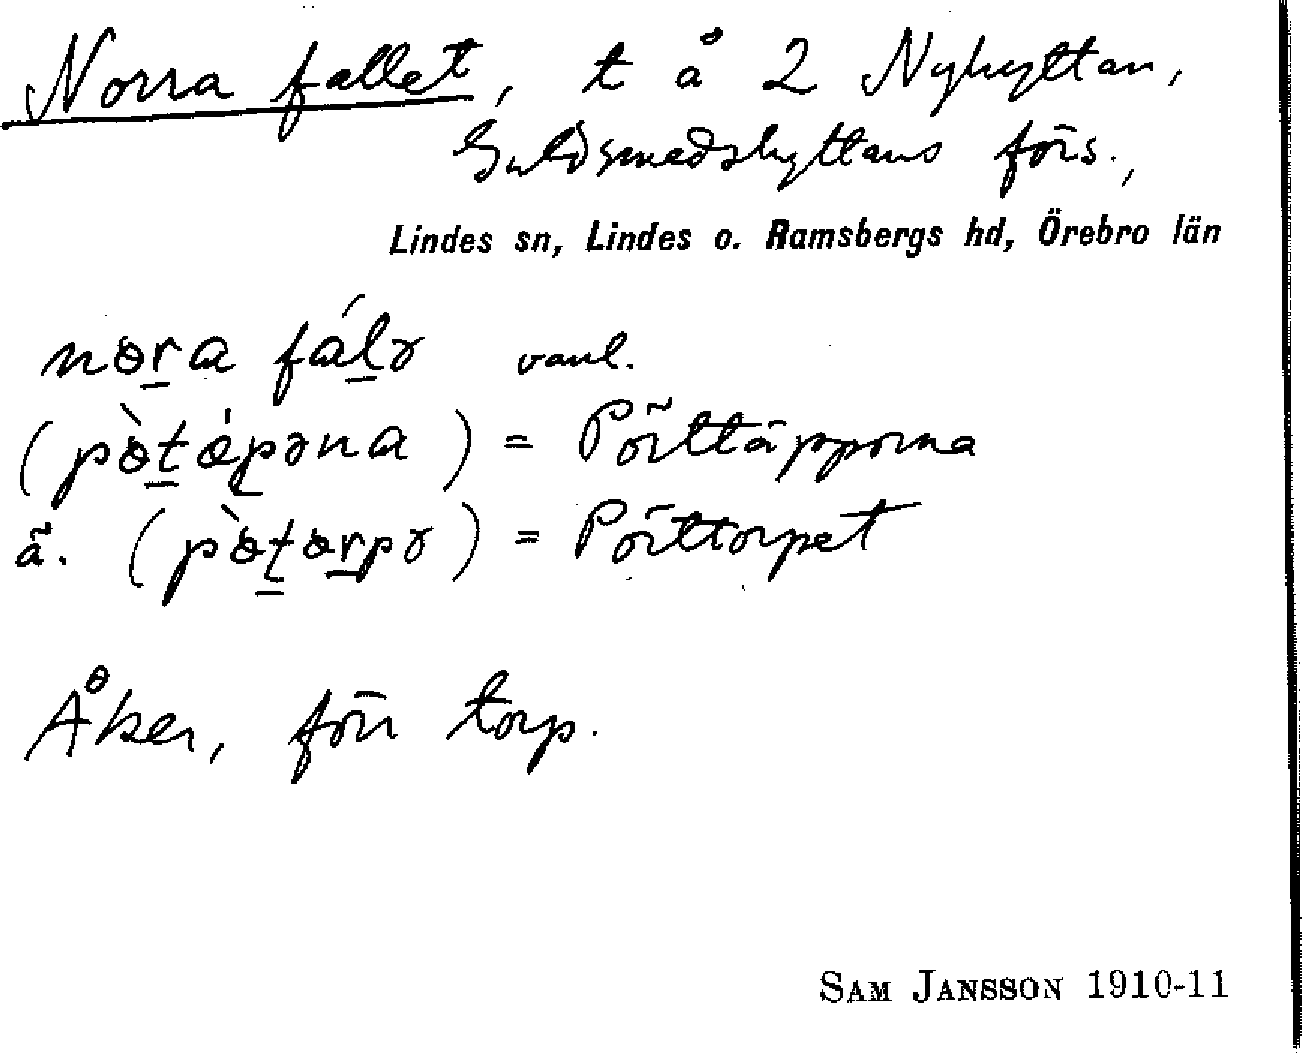 Norra fallet, t å 2 Nyhyttan,
Guldsmedshyttans förs.,
Lindes sn, Lindes o. Ramsbergs hd, Örebro län
nora fálə vanl.
(pòtápəna) = Pörttäpporna
ä. (pòtorpə) = Pörttorpet
Åker, förr torp.
SAM JANSSON 1910-11